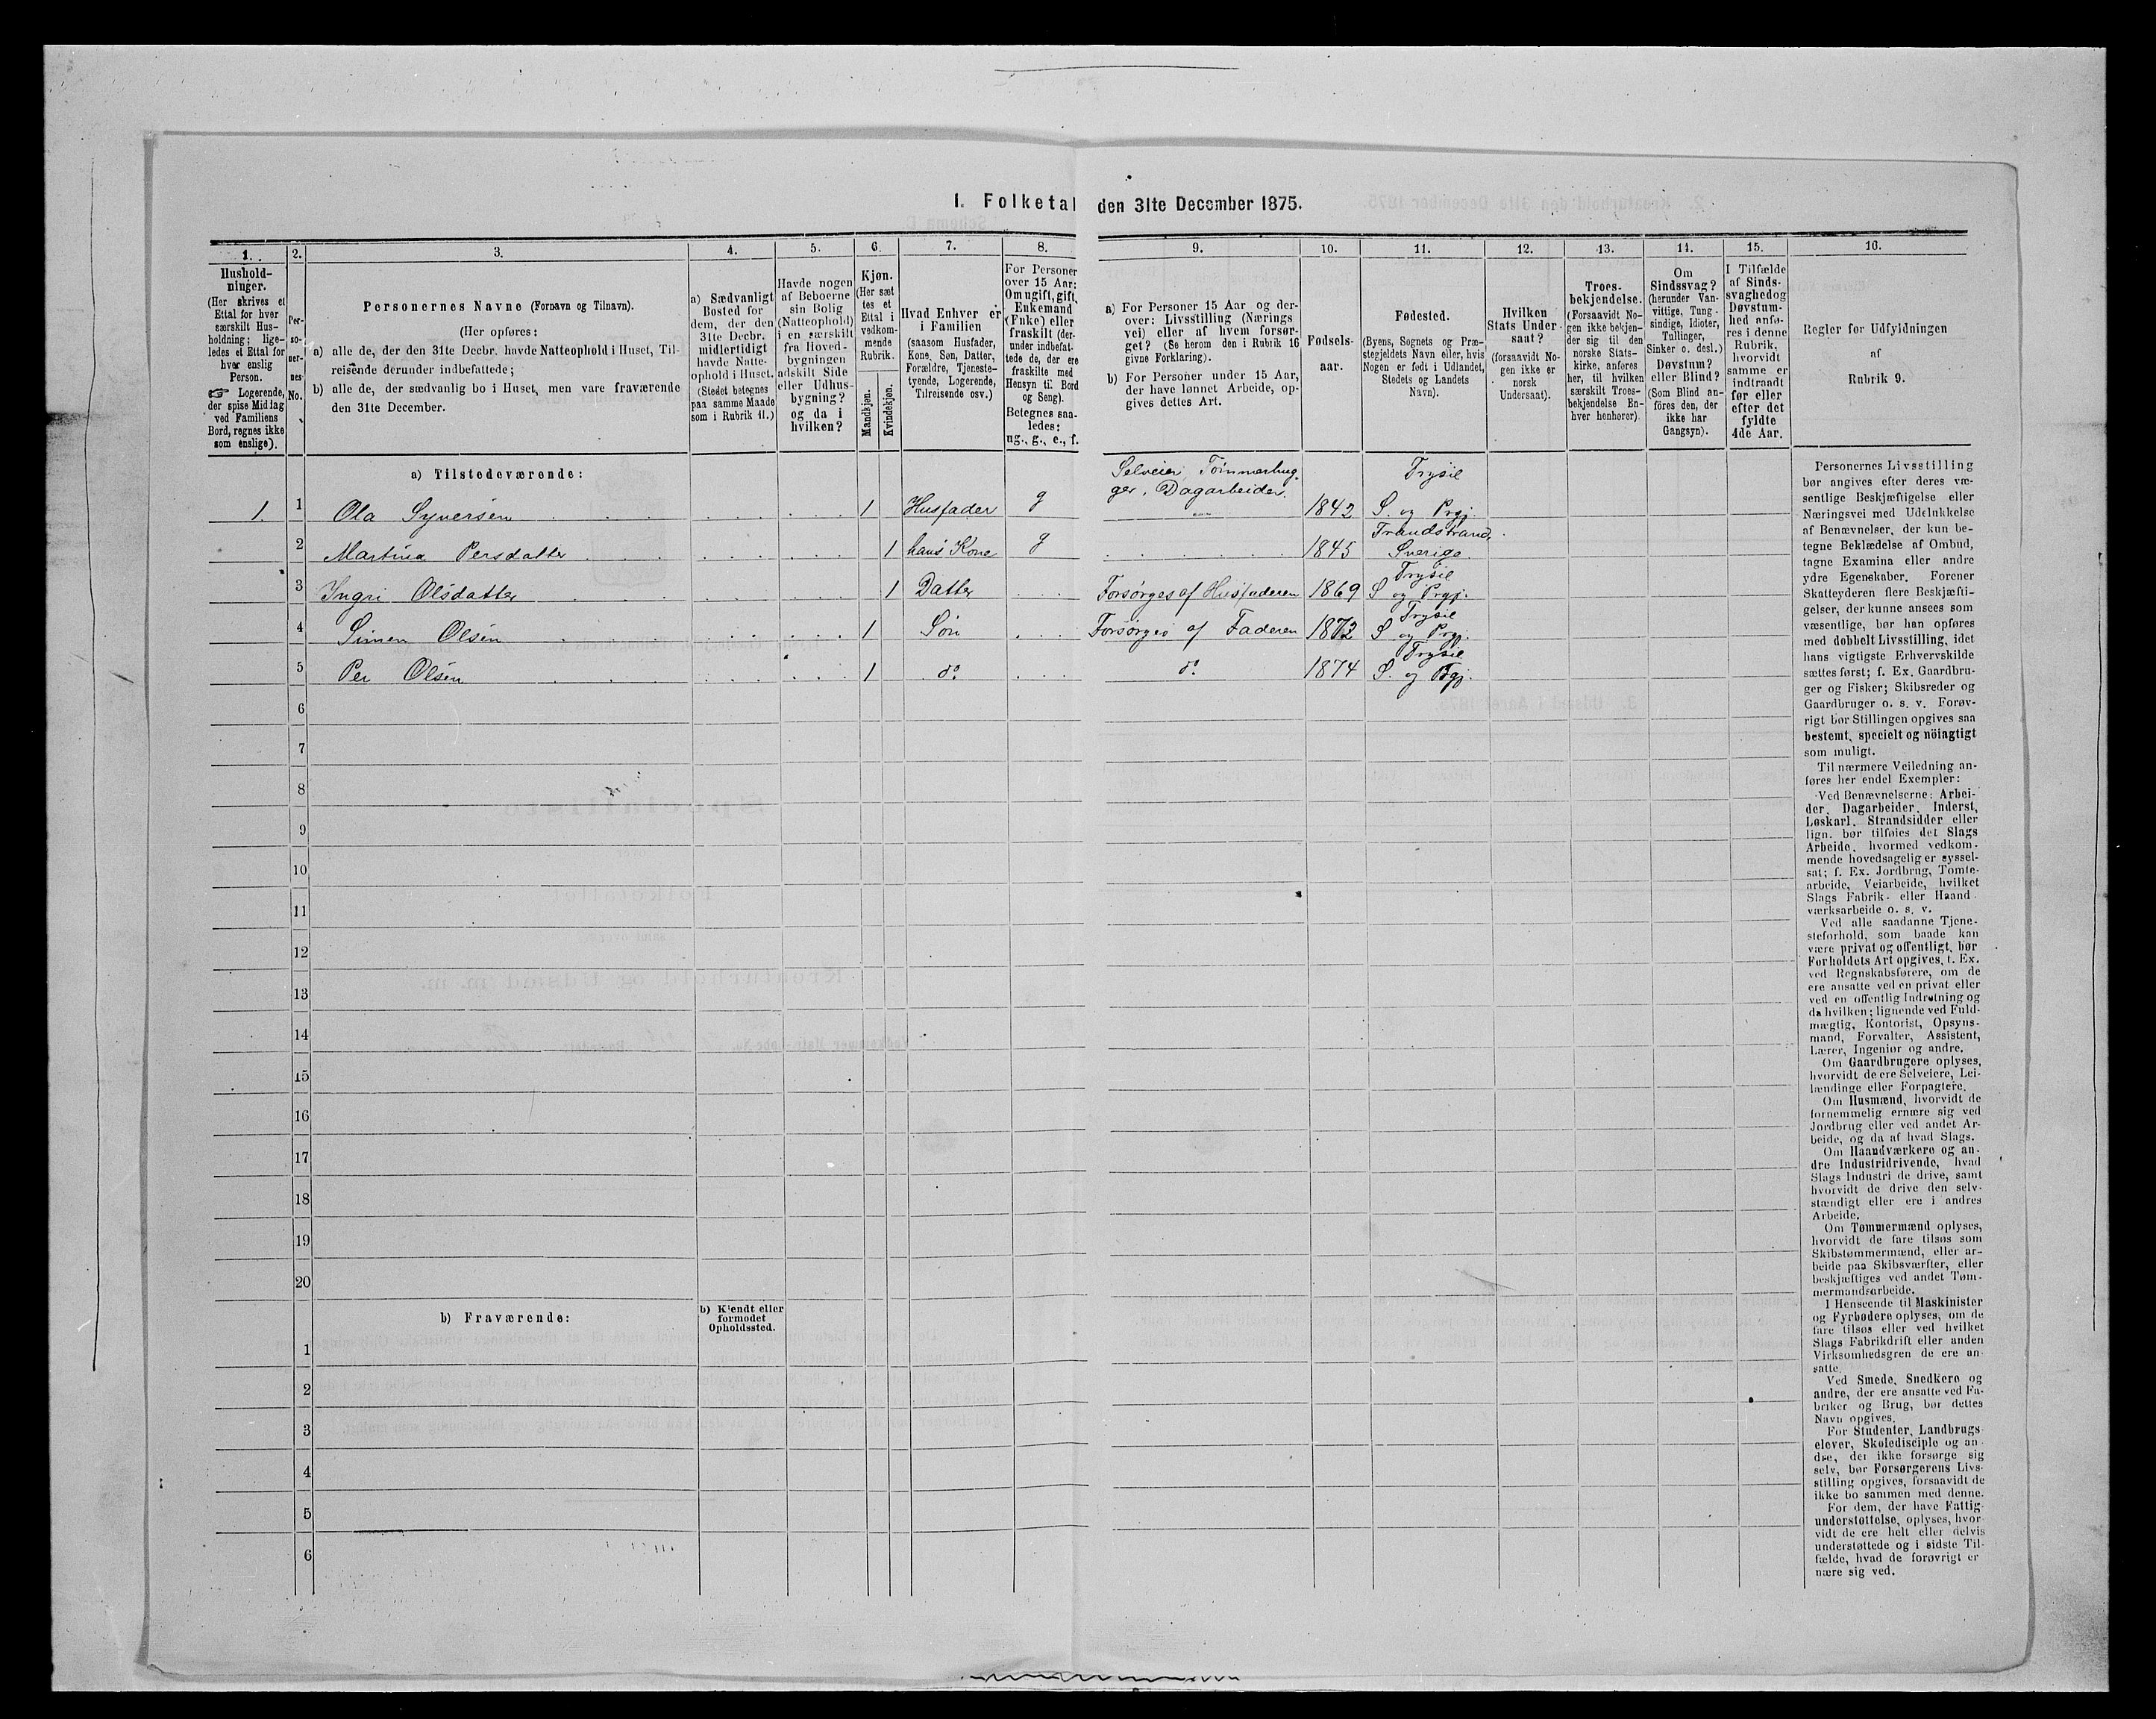 1. Folketal den 31te December 1875.
1.
Hushold-
ninger.
(Her skrives et
Ettal for hver
særskilt Hus-
holdning; lige-
ledes et Ettal for
hver enslig
Person.
☞ Logerende,
der spise Middag
ved Familiens
Bord, regnes ikke
som enslige).
2.
Per-
so-
ner-
nes
No.
3.
Personernes Navne (Fornavn og Tilnavn).
(Her opføres:
a) alle de, der den 31te Decbr. havde Natteophold i Huset, Til-
reisende derunder indbefattede;
b) alle de, der sædvanlig bo i Huset, men vare fraværende
den 31te December.
4.
a) Sædvanligt
Bosted for
dem, der den
31te Decbr.
midlertidigt
havde Natte-
ophold i Huset.
(Stedet betegnes
paa samme Maade
som i Rubrik 11.)
5.
Havde nogen
af Beboerne
sin Bolig
(Natteophold)
i en særskilt
fra Hoved-
bygningen
adskilt Side
eller Udhus-
bygning?
og da i
hvilken?
6.
Kjøn.
(Her sæt
tes et
Ettal i
vedkom-
mende
Rubrik.
Mandkjøn.
Kvindekjøn.
7.
Hvad Enhver er
i Familien
(saasom Husfader,
Kone, Søn, Datter,
Forældre, Tjeneste-
tyende, Logerende,
Tilreisende osv.)
8.
For Personer
over 15 Aar:
Om ugift, gift,
Enkemand
(Enke) eller
fraskilt (der-
under indbefat-
tede de, der ere
fraskilte med
Hensyn til Bord
og Seng).
Betegnes saa-
ledes:
ug., g., e., f.
9.
a) For Personer 15 Aar og der-
over: Livsstilling (Nærings
vei) eller af hvem forsør-
get? (Se herom den i Rubrik 16
givne Forklaring).
b) For Personer under 15 Aar,
der have lønnet Arbeide, op-
gives dettes Art.
10.
Fødsels-
aar.
11.
Fødested.
(Byens, Sognets og Præ-
stegjeldets Navn eller, hvis
Nogen er født i Udlandet,
Stedets og Landets
Navn).
12.
Hvilken
Stats Under-
saat?
(forsaavidt No-
gen ikke er
norsk
Undersaat).
13.
Troes-
bekjendelse.
(Forsaavidt No-
gen ikke bekjen-
der sig til den
norske Stats-
kirke, anføres
her, til hvilken
særskilt Troes-
bekjendelse En-
hver henhører).
14.
Om
Sindssvag?
(herunder Van-
vittige, Tung-
sindige, Idioter,
Tullinger,
Sinker o. desl.)
Døvstum?
eller Blind?
(Som Blind an-
føres den, der
ikke har
Gangsyn).
15.
I Tilfælde
af Sinds-
svaghed og
Døvstum-
hed anfø-
res i denne
Rubrik,
hvorvidt
samme er
indtraadt
før eller
efter det
fyldte
4de Aar.
16.
Regler for Udfyldningen
af
Rubrik 9.
a) Tilstedeværende:
Selveier Tømmerhug-
ger. Dagarbeider.
1. 1 Ola Syversen 1 Husfader g 1842 Trysil S. og Prgj.
2 Martina Persdatter 1 hans Kone g 1845 Transtrand, Sverige.
3 Ingri Olsdatter 1 Datter Forsørges af Husfaderen 1869 Trysil S og Prgj.
4 Simen Olsen 1 Søn Forsørges af Faderen 1872 Trysil S og Prgj.
5 Per Olsen 1 do. do. 1874 Trysil S. og Prgj.
6
7
8
9
10
11
12
13
14
15
16
17
18
19
20
b) Fraværende:
b) Kjendt eller
formodet
Opholdssted.
1
2
3
4
5
6
Personernes Livsstilling
bør angives efter deres væ-
sentlige Beskjæftigelse eller
Næringsvei med Udelukkelse
af Benævnelser, der kun be-
tegne Beklædelse af Ombud,
tagne Examina eller andre
ydre Egenskaber. Forener
Skatteyderen flere Beskjæfti-
gelser, der kunne ansees som
væsentlige, bør han opføres
med dobbelt Livsstilling, idet
hans vigtigste Erhvervskilde
sættes først; f. Ex. Gaardbru-
ger og Fisker; Skibsreder og
Gaardbruger o. s. v. Forøv-
rigt bør Stillingen opgives saa
bestemt, specielt og nöiagtigt
som muligt.
Til nærmere Veiledning an-
føres her endel Exempler:
Ved Benævnelserne: Arbei-
der, Dagarbeider, Inderst,
Løskarl, Strandsidder eller
lign. bør tilføies det Slags
Arbeide, hvormed vedkom-
mende hovedsagelig er syssel-
sat; f. Ex. Jordbrug, Tomte-
arbeide, Veiarbeide, hvilket
Slags Fabrik- eller Haand-
værksarbeide o. s. v.
Ved alle saadanne Tjene-
steforhold, som baade kan
være privat og offentligt, bør
Forholdets Art opgives, f. Ex.
ved Regnskabsførere, om de
ere ansatte ved en privat eller
ved en offentlig Indretning og
da hvilken; lignende ved Fuld-
mægtig, Kontorist, Opsyns-
mand, Forvalter, Assistent,
Lærer, Ingeniør og andre.
Om Gaardbrugere oplyses,
hvorvidt de ere Selveiere, Lei-
lændinge eller Forpagtere.
Om Husmænd, hvorvidt de
fornemmelig ernære sig ved
Jordbrug eller ved andet Ar-
beide, og da af hvad Slags.
Om Haandværkere og an-
dre Industridrivende, hvad
Slags Industri de drive, samt
hvorvidt de drive den selv-
stændigt eller ere i andres
Arbeide.
Om Tømmermænd oplyses,
hvorvidt de fare tilsøs som
Skibstømmermænd, eller ar-
beide paa Skibsværfter, eller
beskjæftiges ved andet Tøm-
mermandsarbeide.
I Henseende til Maskinister
og Fyrbødere oplyses, om de
fare tilsøs eller ved hvilket
Slags Fabrikdrift eller anden
Virksomhedsgren de ere an-
satte.
Ved Smede, Snedkere og
andre, der ere ansatte ved Fa-
briker og Brug, bør dettes
Navn opgives.
For Studenter, Landbrugs-
elever, Skoledisciple og an-
dre, der ikke forsørge sig
selv, bør Forsørgerens Livs-
stilling opgives, forsaavidt de
ikke bo sammen med denne.
For dem, der have Fattig-
understøttelse, oplyses, hvor-
vidt de ere helt eller delvis
understøttede og i sidste Til-
fælde, hvad de forøvrigt er
nære sig ved.